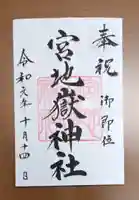 奉祝 御即位
宮地嶽神社
令和元年十月十四日